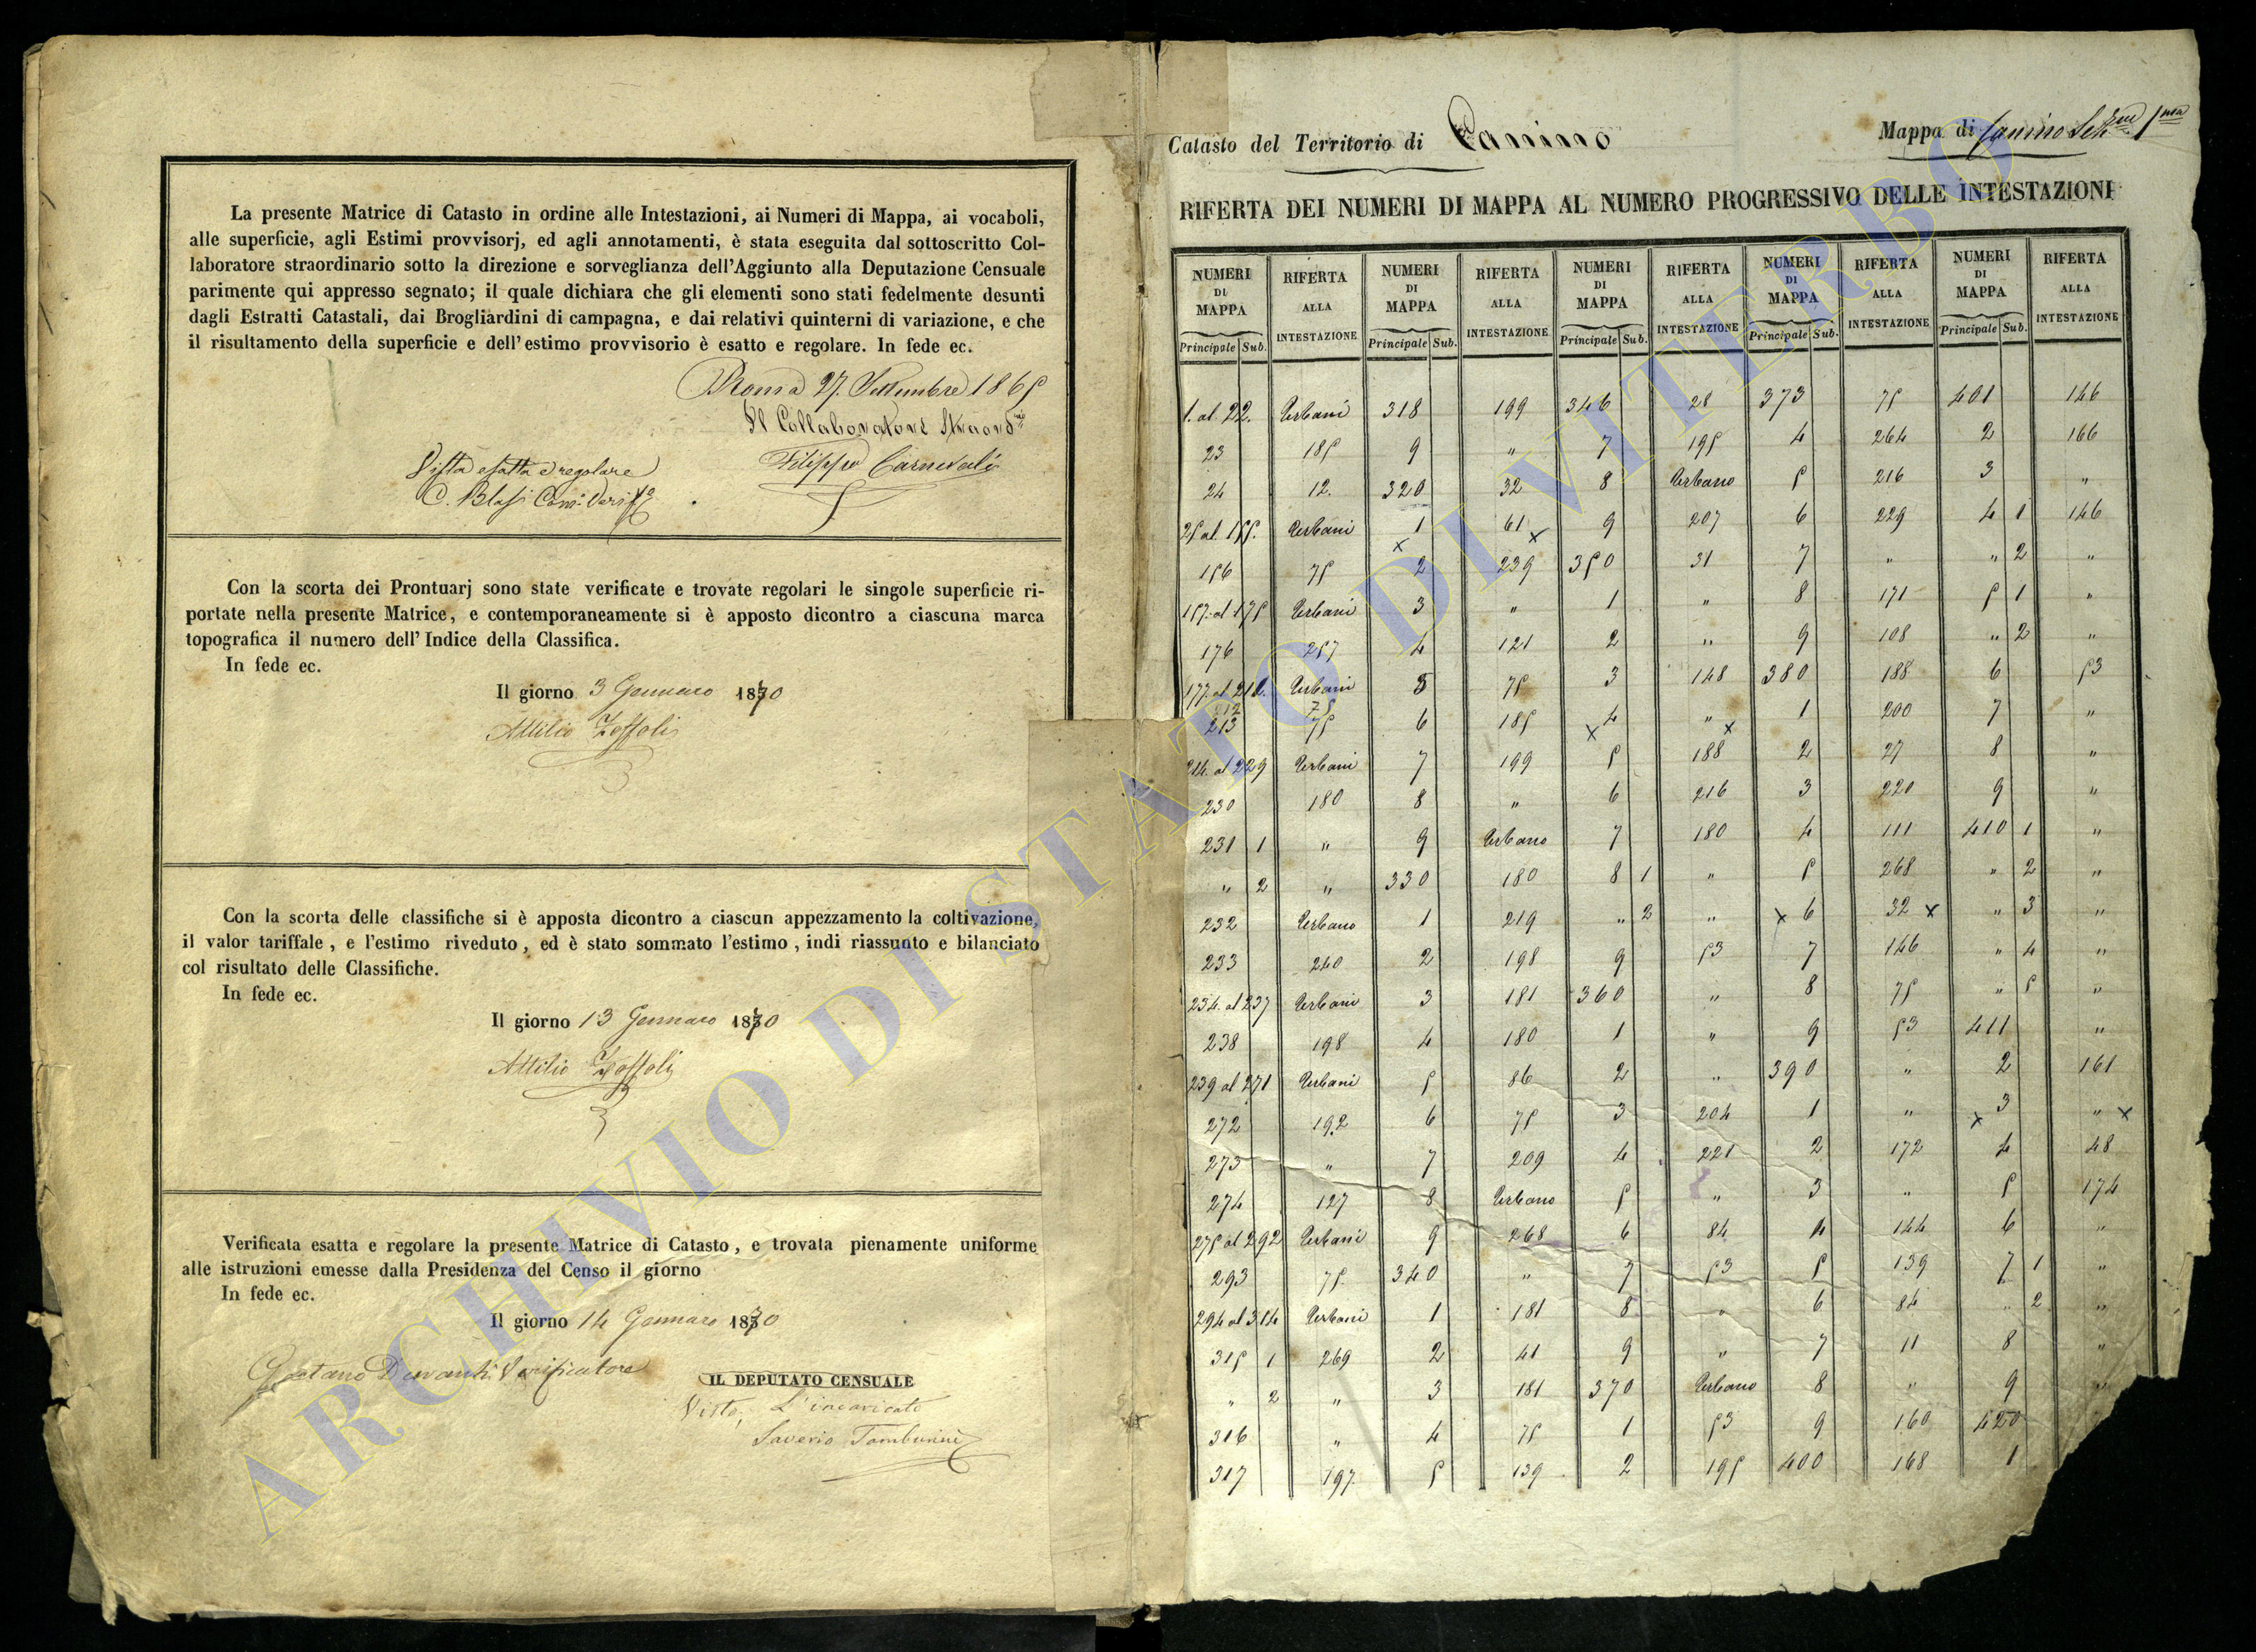 La presente Matrice di Catasto in ordine alle Intestazioni, ai Numeri di Mappa, ai vocaboli,
alle superficie, agli Estimi provvisorj, ed agli annotamenti, è stata eseguita dal sottoscritto Col-
laboratore straordinario sotto la direzione e sorveglianza dell'Aggiunto alla Deputazione Censuale
parimente qui appresso segnato; il quale dichiara che gli elementi sono stati fedelmente desunti
dagli Estratti Catastali, dai Brogliardini di campagna, e dai relativi quinterni di variazione, e che
il risultamento della superficie e dell'estimo provvisorio è esatto e regolare. In fede ec.
Roma 27. Settembre 1865
Il Collaboratore Straord.
Filippo Carnevali
Vista esatta e regolare
C. Blasi
Con la scorta dei Prontuarj sono state verificate e trovate regolari le singole superficie ri-
portate nella presente Matrice, e contemporaneamente si è apposto dicontro a ciascuna marca
topografica il numero dell'Indice della Classifica.
In fede ec.
Il giorno 3 Gennaro 1870
Attilio Zoffoli
Con la scorta delle classifiche si è apposta dicontro a ciascun appezzamento la coltivazione,
il valor tariffale, e l'estimo riveduto, ed è stato sommato l'estimo, indi riassunto e bilanciato
col risultato delle Classifiche.
In fede ec.
Il giorno 13 Gennaro 1870
Attilio Zoffoli
Verificata esatta e regolare la presente Matrice di Catasto, e trovata pienamente uniforme
alle istruzioni emesse dalla Presidenza del Censo il giorno
In fede ec.
Il giorno 14 Gennaro 1870
Gaetano Verificatore
IL DEPUTATO CENSUALE
Visto, L'incaricato
Saverio Tamburini
Catasto del Territorio di Canino
Mappa di Canino Sez.ne 1.ma
RIFERTA DEI NUMERI DI MAPPA AL NUMERO PROGRESSIVO DELLE INTESTAZIONI
NUMERI DI MAPPA RIFERTA ALLA INTESTAZIONE NUMERI DI MAPPA RIFERTA ALLA INTESTAZIONE NUMERI DI MAPPA RIFERTA ALLA INTESTAZIONE NUMERI DI MAPPA RIFERTA ALLA INTESTAZIONE NUMERI DI MAPPA RIFERTA ALLA INTESTAZIONE
Principale Sub. Principale Sub. Principale Sub. Principale Sub. Principale Sub.
1. al 22. Urbani 318 199 346 28 373 75 401 146
23 185 9 " 7 195 4 264 2 166
24 12. 320 32 8 Urbano 5 216 3 "
25 al 155. Urbani 1 61 9 207 6 229 4 1 146
156 75 x 2 239 x 350 31 7 " " 2 "
157. al 175 Urbani 3 " 1 " 8 171 5 1 "
176 257 4 121 2 " 9 108 " 2 "
177. al 211. Urbani 5 75 3 148 380 188 6 53
212 75
213 75 6 185 4 " 1 200 7 "
214. al 229 Urbani 7 199 x 5 188 x 2 27 8 "
230 180 8 " 6 216 3 220 9 "
231 1 " 9 Urbano 7 180 4 111 410 1 "
" 2 " 330 180 8 1 " 5 268 " 2 "
232 Urbano 1 219 " 2 " x 6 32 x " 3 "
233 240 2 198 9 53 7 146 " 4 "
234. al 237 Urbani 3 181 360 " 8 75 " 5 "
238 198 4 180 1 " 9 53 411 "
239 al 271 Urbani 5 86 2 " 390 " 2 161
272 192 6 75 3 204 1 " x 3 " x
273 " 7 209 4 221 2 172 4 48
274 127 8 Urbano 5 " 3 " 5 174
275 al 292 Urbani 9 268 6 84 4 144 6 "
293 75 340 " 7 53 5 139 7 1 "
294 al 314 Urbani 1 181 8 " 6 84 " 2 "
315 1 269 2 41 9 " 7 11 8 "
" 2 " 3 181 370 Urbano 8 " 9 "
316 " 4 75 1 53 9 160 420
317 197. 5 139 2 195 400 168 1
ARCHIVIO DI STATO DI VITERBO